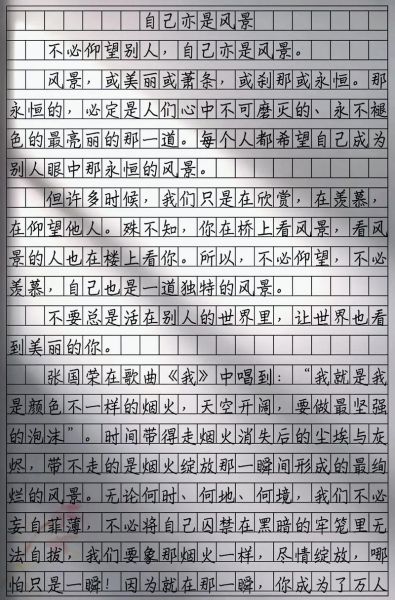 自己亦是风景
不必仰望别人，自己亦是风景。
风景，或美丽或萧条，或刹那或永恒。那
永恒的，必定是人们心中不可磨灭的、永不褪
色的最亮丽的那一道。每个人都希望自己成为
别人眼中那永恒的风景。
但许多时候，我们只是在欣赏，在羡慕，
在仰望他人。殊不知，你在桥上看风景，看风
景的人也在楼上看你。所以，不必仰望，不必
羡慕，自己也是一道独特的风景。
不要总是活在别人的世界里，让世界也看
到美丽的你。
张国荣在歌曲《我》中唱到：“我就是我
是颜色不一样的烟火，天空开阔，要做最坚强
的泡沫”。时间带得走烟火消失后的尘埃与灰
烬，带不走的是烟火绽放那一瞬间形成的最绚
烂的风景。无论何时、何地、何境，我们不必
妄自菲薄，不必将自己囚禁在黑暗的牢笼里无
法自拔，我们要象那烟火一样，尽情绽放，哪
怕只是一瞬！因为就在那一瞬，你成为了万人